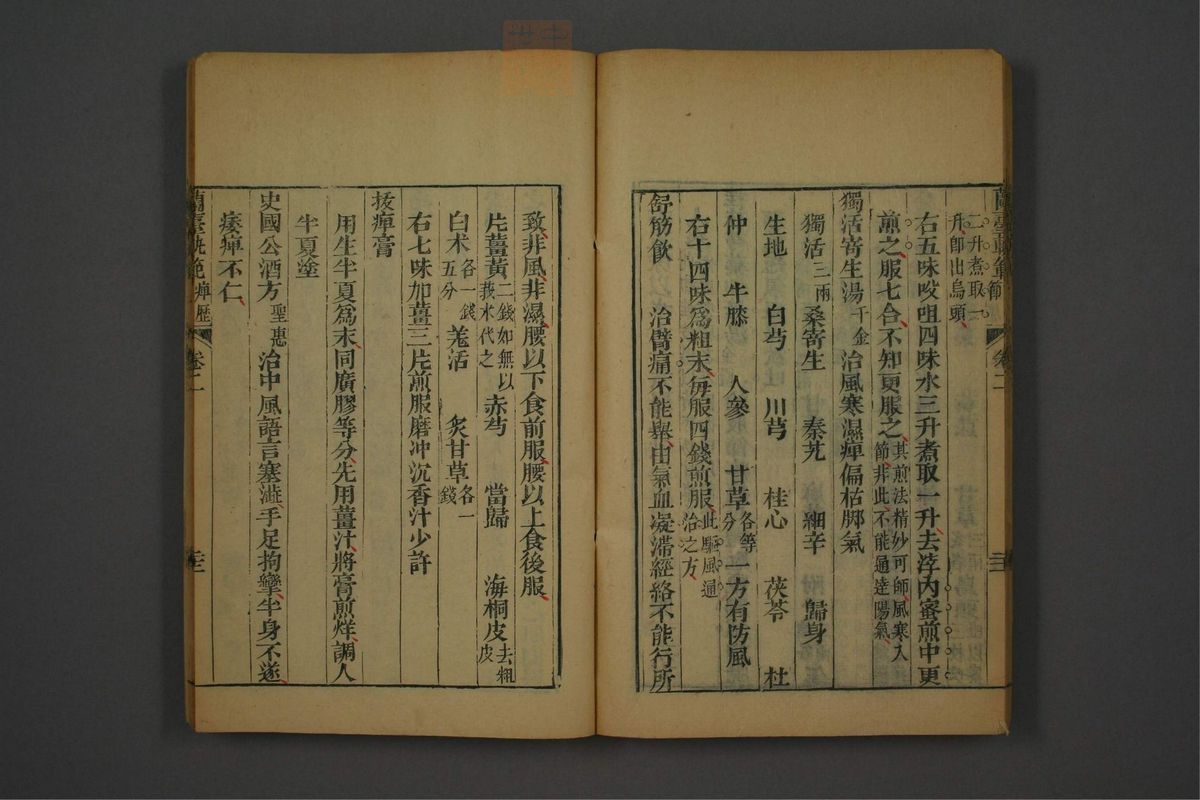 二升煮取一
升即出烏頭
右五味㕮咀四味水三升煮取一升去滓内蜜煎中更
煎之服七合不知更服之其煎法精妙可師風寒入
節非此不能通達陽氣
獨活寄生湯千金治風寒濕痺偏枯脚氣
獨活三兩 桑寄生 秦艽 細辛 歸身
生地 白芍 川芎 桂心 茯苓 杜
仲 牛膝 人參 甘草各等分 一方有防風
右十四味為粗末每服四錢煎服此驅風通
治之方
舒筋飲 治臂痛不能舉由氣血凝滯經絡不能行所
卷二
致非風非濕腰以下食前服腰以上食後服
片薑黃二錢如無以
莪水代之 赤芍 當歸 海桐皮去粗
皮
白朮各一錢
五分 羌活 炙甘草各一
錢
右七味加薑三片煎服磨冲沉香汁少許
拔痺膏
用生半夏為末同廣膠等分先用薑汁將膏煎烊調人
半夏塗
史國公酒方聖惠治中風語言蹇澁手足拘攣半身不遂
痿痺不仁
蘭臺軌範痺歷
卷二